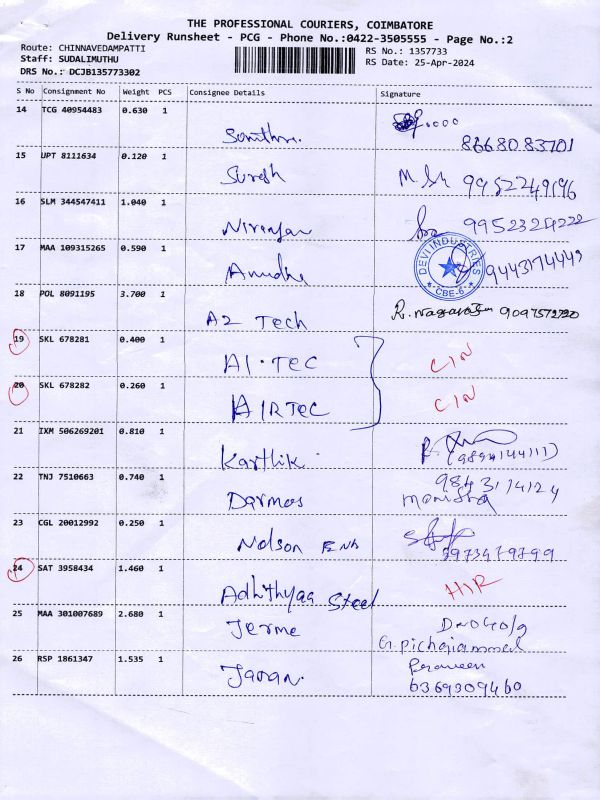 THE PROFESSIONAL COURIERS, COIMBATORE
Delivery Runsheet - PCG - Phone No.:0422-3505555 - Page No.:2
Route: CHINNAVEDAMPATTI
RS No.: 1357733
Staff: SUDALIMUTHU
RS Date: 25-Apr-2024
DRS No.: DCJB135773302
S No Consignment No Weight PCS Consignee Details Signature
14 TCG 40954483 0.630 1
8668083701
15 UPT 8111634 0.120 1
Suresh 9952249196
16 SLM 344547411 1.040 1
Niranjan 9952324222
17 MAA 109315265 0.590 1
DEVI INDUSTRIES
CBE-6
9443174449
18 POL 8091195 3.700 1
A2 Tech
19 SKL 678281 0.400 1
AI.TEC CIN
20 SKL 678282 0.260 1
AIRTEC CIN
21 IXM 506269201 0.810 1
Karthik (9894144111)
22 TNJ 7510663 0.740 1
9843174124
Darmas
23 CGL 20012992 0.250 1
24 SAT 3958434 1.460 1
Adhithyaa Steel
25 MAA 301007689 2.680 1
Jerme
G. pichaiammal
26 RSP 1861347 1.535 1
Praveen
6369309460